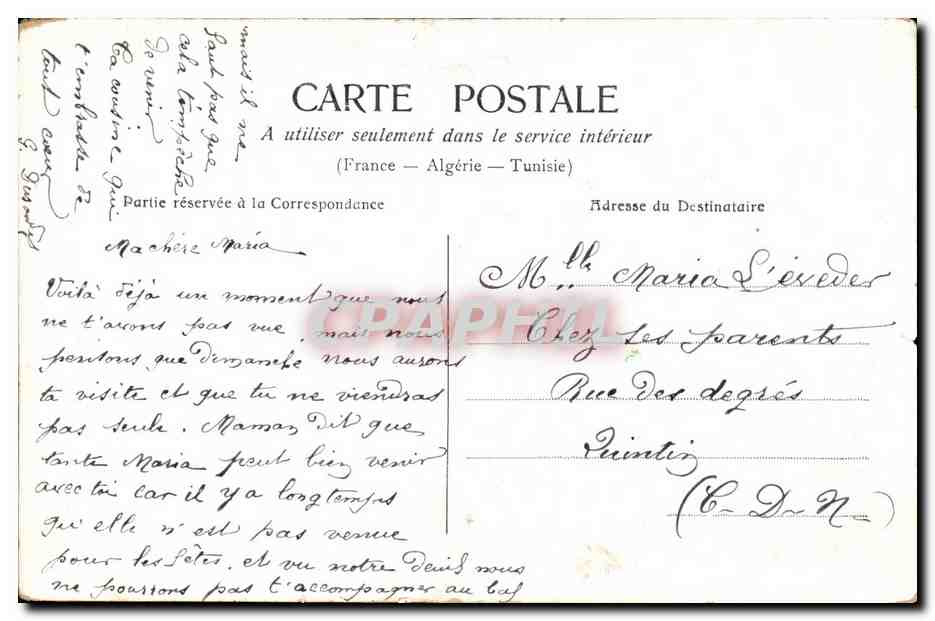 CARTE POSTALE
A utiliser seulement dans le service intérieur
(France — Algérie — Tunisie)
Partie réservée à la Correspondance
Adresse du Destinataire
Ma chère Maria
Voilà déjà un moment que nous
ne t'avons pas vue mais nous
pensons que Dimanche nous aurons
ta visite et que tu ne viendras
pas seule. Maman Dit que
tante Maria peut bien venir
avec toi car il y a longtemps
qu'elle n'est pas venue
pour les fêtes. et vu notre Deuil nous
ne pourrons pas t'accompagner au bal
mais il ne
faut pas que
cela t'empêche
de venir
Ta cousine qui
t'embrasse de
tout cœur
G.
Mlle Maria L'éveder
Chez ses parents
Rue des degrés
Quintin
(C-D-N-)
CPAPHIL